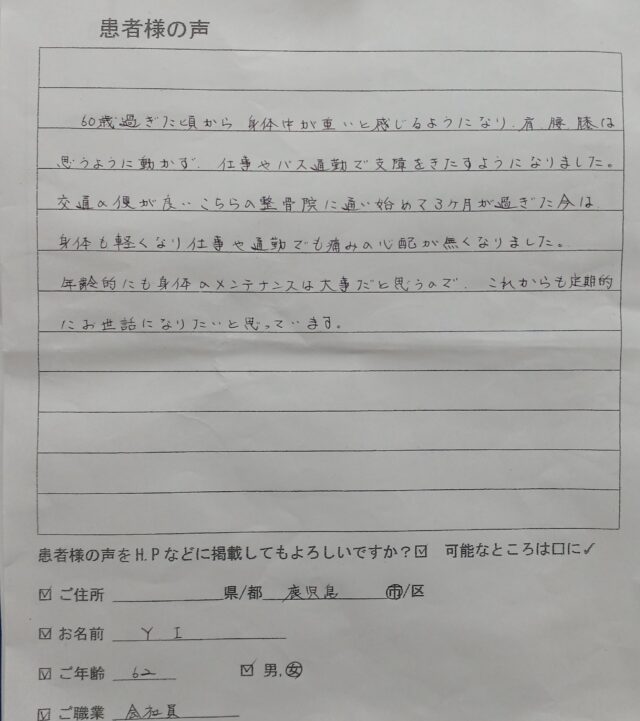 患者様の声
60歳過ぎた頃から身体中が重いと感じるようになり、肩、腰、膝は
思うように動かず、仕事やバス通勤で支障をきたすようになりました。
交通の便が良いこちらの整骨院に通い始めて3ヶ月が過ぎた今は、
身体も軽くなり仕事や通勤でも痛みの心配が無くなりました。
年齢的にも身体のメンテナンスは大事だと思うので、これからも定期的
にお世話になりたいと思っています。
患者様の声をH.Pなどに掲載してもよろしいですか?☑ 可能なところは口に✓
☑ ご住所 県/都 鹿児島 市/区
☑ お名前 Y I
☑ ご年齢 62 ☑ 男.女
☑ ご職業 会社員